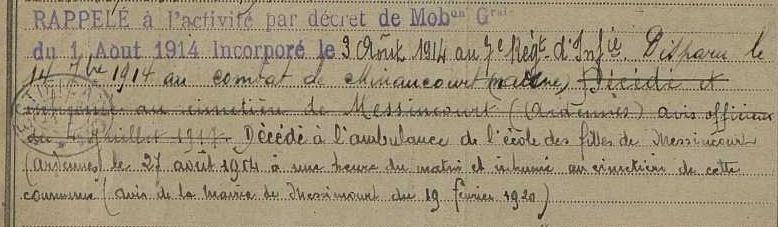 RAPPELÉ à l'activité par décret de Mob^on G^ale
du 1 Aout 1914 Incorporé le 3 Août 1914 au 7e Régt d'Infie. Disparu le
14 7bre 1914 au combat de Minaucourt (Marne) Décédé et
inhumé au cimetière de Messincourt (Ardennes) avis officieux
du juillet 1917. Décédé à l'ambulance de l'école des filles de Messincourt
(Ardennes) le 27 août 1914 à une heure du matin et inhumé au cimetière de cette
commune (avis de la Mairie de Messincourt du 19 février 1920)